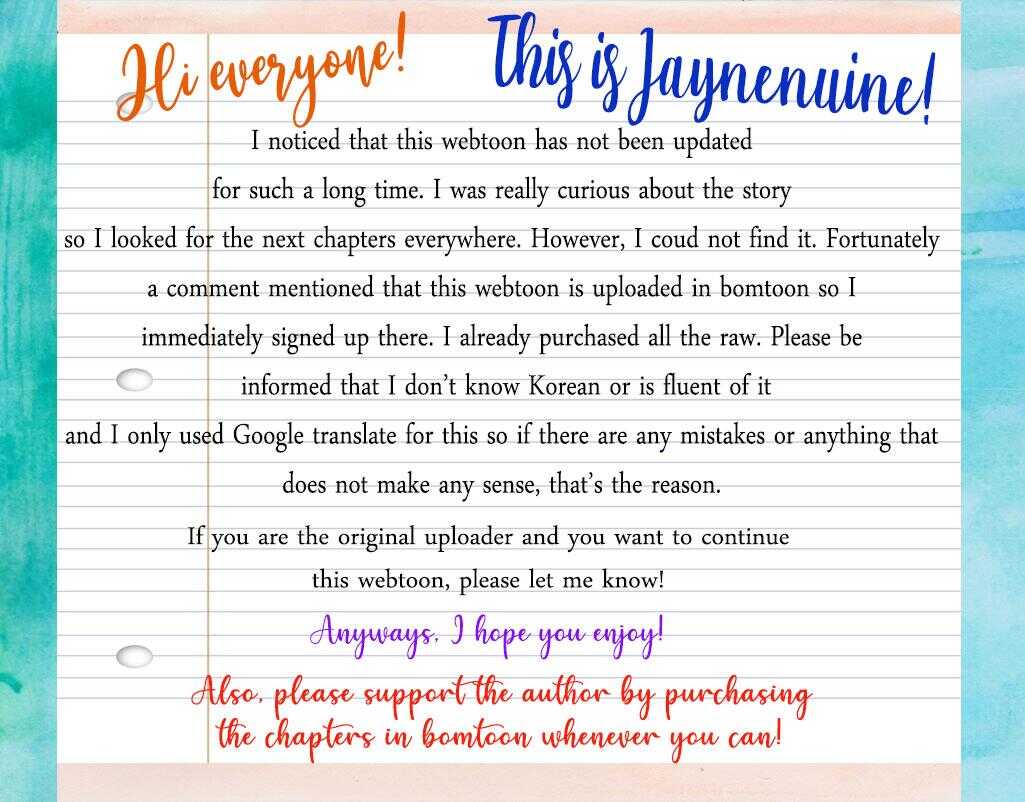 Hi everyone! This is Jaynenuine!
I noticed that this webtoon has not been updated
for such a long time. I was really curious about the story
so I looked for the next chapters everywhere. However, I coud not find it. Fortunately
a comment mentioned that this webtoon is uploaded in bomtoon so I
immediately signed up there. I already purchased all the raw. Please be
informed that I don't know Korean or is fluent of it
and I only used Google translate for this so if there are any mistakes or anything that
does not make any sense, that's the reason.
If you are the original uploader and you want to continue
this webtoon, please let me know!
Anyways, I hope you enjoy!
Also, please support the author by purchasing
the chapters in bomtoon whenever you can!